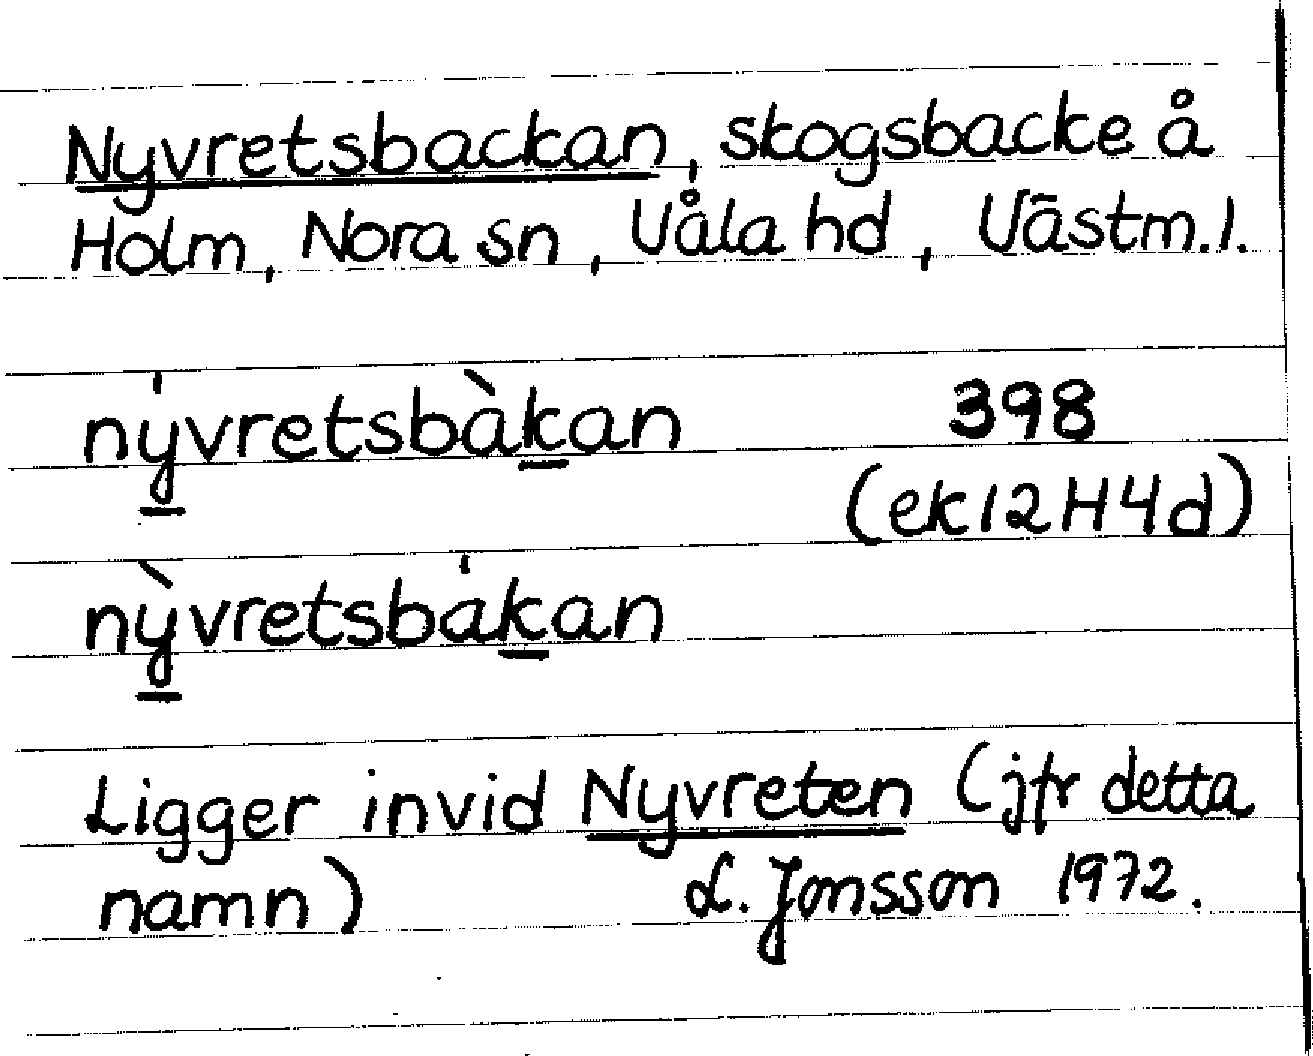 Nyvretsbackan, skogsbacke å
Holm, Nora sn, Våla hd, Västm.l.
nývretsbàkan 398
(ek 12H4d)
nỳvretsbákan
Ligger invid Nyvreten (jfr detta
namn) L. Jonsson 1972.